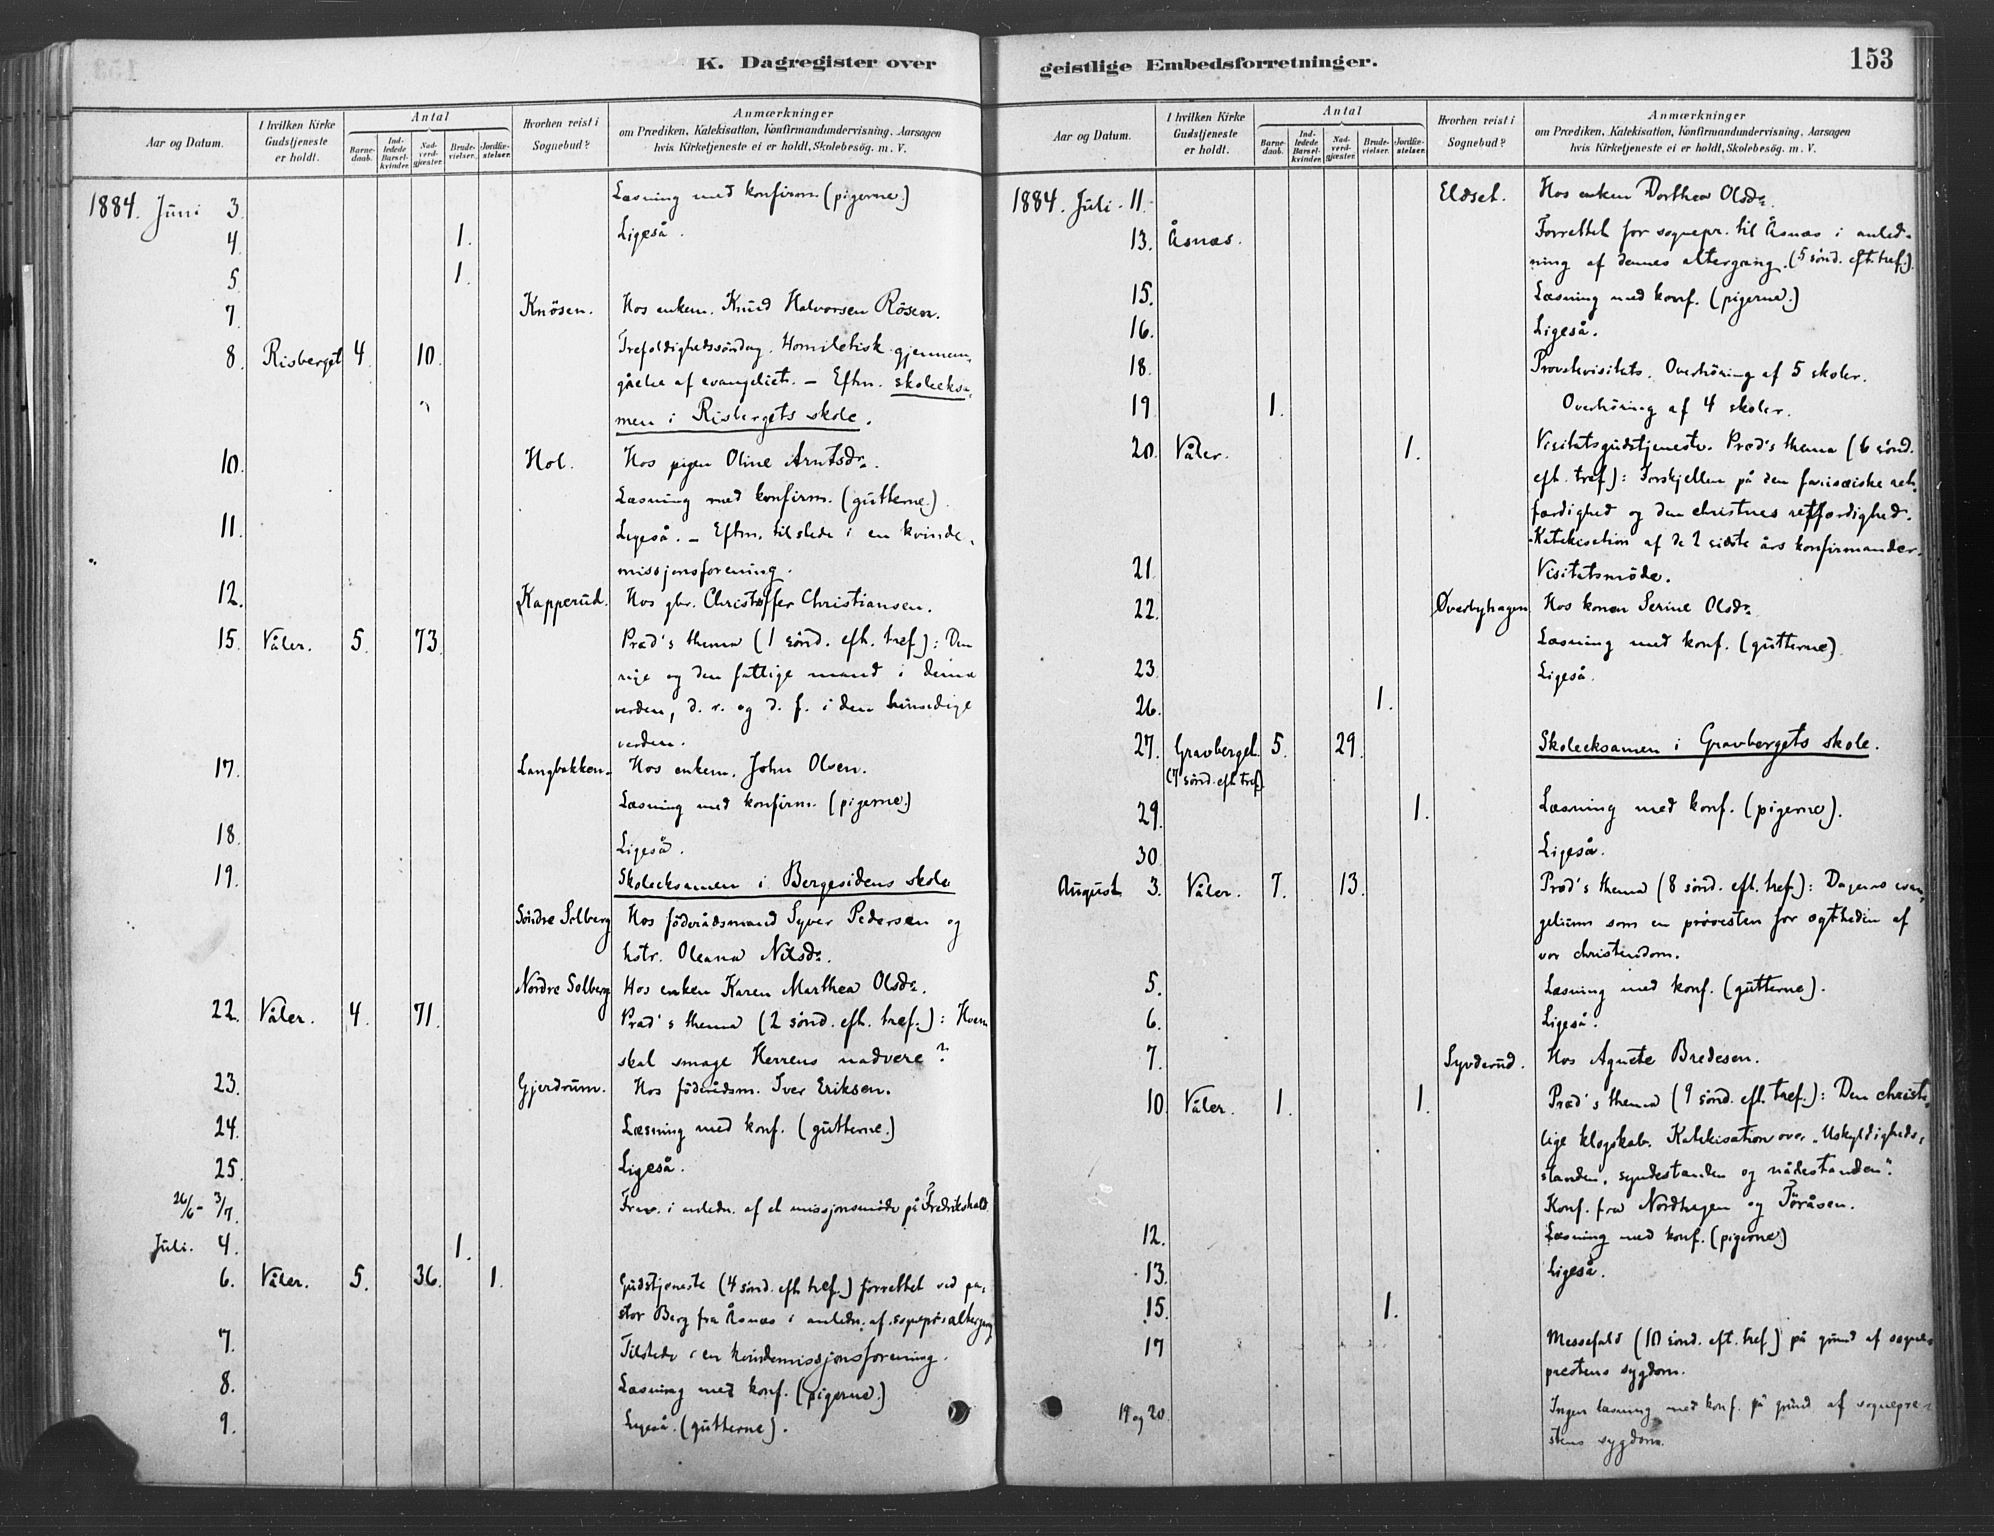 K. Dagregister over
Aar og Datum.
I hvilken Kirke Gudstjeneste er holdt.
Antal
Barnedaab.
Indledede Barselkvinder.
Nadverdgjæster.
Brudevielser.
Jordfæstelser.
Hvorhen reist i Sognebud?
Anmærkninger
om Prædiken, Katekisation, Konfirmandundervisning, Aarsagen
hvis Kirketjeneste ei er holdt, Skolebesøg. m. V.
1884. Juni 3. Læsning med konfirm. (pigerne.)
4. 1. Ligeså.
5. 1.
7. Knösen. Hos enkem. Knud Halvorsen Rösen.
8. Risberget 4. 10. Trefoldighedssöndag. Homiletisk gjennem-
gåelse af evangeliet. – Eftm. skoleeksa-
men i Risbergets skole.
10. Hol. Hos pigen Oline Arntsdr.
Læsning med konfirm. (gutterne.)
11. Ligeså. – Eftm. tilstede i en kvinde-
missjonsforening.
12. Kapperud. Hos gbr. Christoffer Christiansen.
15. Våler. 5. 73. Præd's thema (1 sönd. eft. tref.): Den
rige og den fattige mand i denne
verden, d. r. og d. f. i den hinsidige
verden.
17. Langbakken. Hos enkem. John Olsen.
Læsning med konfirm. (pigerne.)
18. Ligeså.
19. Skoleeksamen i Bergesidens skole
Söndre Solberg Hos föderådsmand Syver Pedersen og
hstr. Oleana Nilsdr.
Nordre Solberg Hos enken Karen Marthea Olsdr.
22. Våler. 4. 71. Præd's thema (2 sönd. eft. tref.): Hvem
skal smage Herrens nadvere?
23. Gjerdrum. Hos föderådsm. Iver Eriksen.
24. Læsning med konf. (gutterne.)
25. Ligeså.
26/6 – 3/7. Frav. i anledn. af et missjonsmöde på Fredrikshald.
Juli. 4. 1.
6. Våler. 5. 36. 1. Gudstjeneste (4 sönd. eft. tref.) forrettet ved pa-
stor Berg fra Åsnæs i anledn. af sognepr's altergang
7. Tilstede i en kvindemissjonsforening.
8. Læsning med konf. (pigerne.)
9. Ligeså. (gutterne).
geistlige Embedsforretninger.
153
Aar og Datum.
I hvilken Kirke Gudstjeneste er holdt.
Antal
Barnedaab.
Indledede Barselkvinder.
Nadverdgjæster.
Brudevielser.
Jordfæstelser.
Hvorhen reist i Sognebud?
Anmærkninger
om Prædiken, Katekisation, Konfirmandundervisning, Aarsagen
hvis Kirketjeneste ei er holdt, Skolebesøg. m. V.
1884. Juli. 11. Eldset. Hos enken Dorthea Olsdr.
13. Åsnæs. Forrettet for sognepr. til Åsnæs i anled-
ning af dennes altergang. (5 sönd. eft. tref.).
15. Læsning med konf. (pigerne.)
16. Ligeså.
18. Provstevisitats. Overhöring af 5 skoler.
19. 1. Overhöring af 4 skoler.
20. Våler. 1. Visitatsgudstjeneste. Præd's thema (6 sönd.
eft. tref): Forskjellen på den farisæiske ret-
færdighed og den christnes retfærdighed.
Katekisation af de 2 sidste års konfirmander.
21. Visitatsmöde.
22. Øverbyhagen Hos konen Serine Olsdr.
Læsning med konf. (gutterne).
23. Ligeså.
26. 1.
27. Gravberget. 5. 29. Skoleeksamen i Gravbergets skole.
(7 sönd. eft. tref.)
29. 1. Læsning med konf. (pigerne).
30. Ligeså.
August 3. Våler. 7. 13. Præd's thema (8 sönd. eft. tref.): Dagens evan-
gelium som en prövesten for ægtheden af
vor christendom.
5. Læsning med konf. (gutterne).
6. Ligeså.
7. Syvderud. Hos Agnete Bredesen.
10. Våler. 1. 1. Præd's thema (9 sönd. eft. tref.): Den christe-
lige klogskab. Katekisation over „Uskyldigheds-
standen, syndestanden og nådestanden".
Konf. fra Nordhagen og Töråsen.
12. Læsning med konf. (pigerne)
13. Ligeså.
15. 1.
17 Messefald (10 sönd. eft. tref.) på grund af sogne-
prestens sygdom.
19 og 20. Ingen læsning med konf. på grund af sognepre-
stens sygdom.